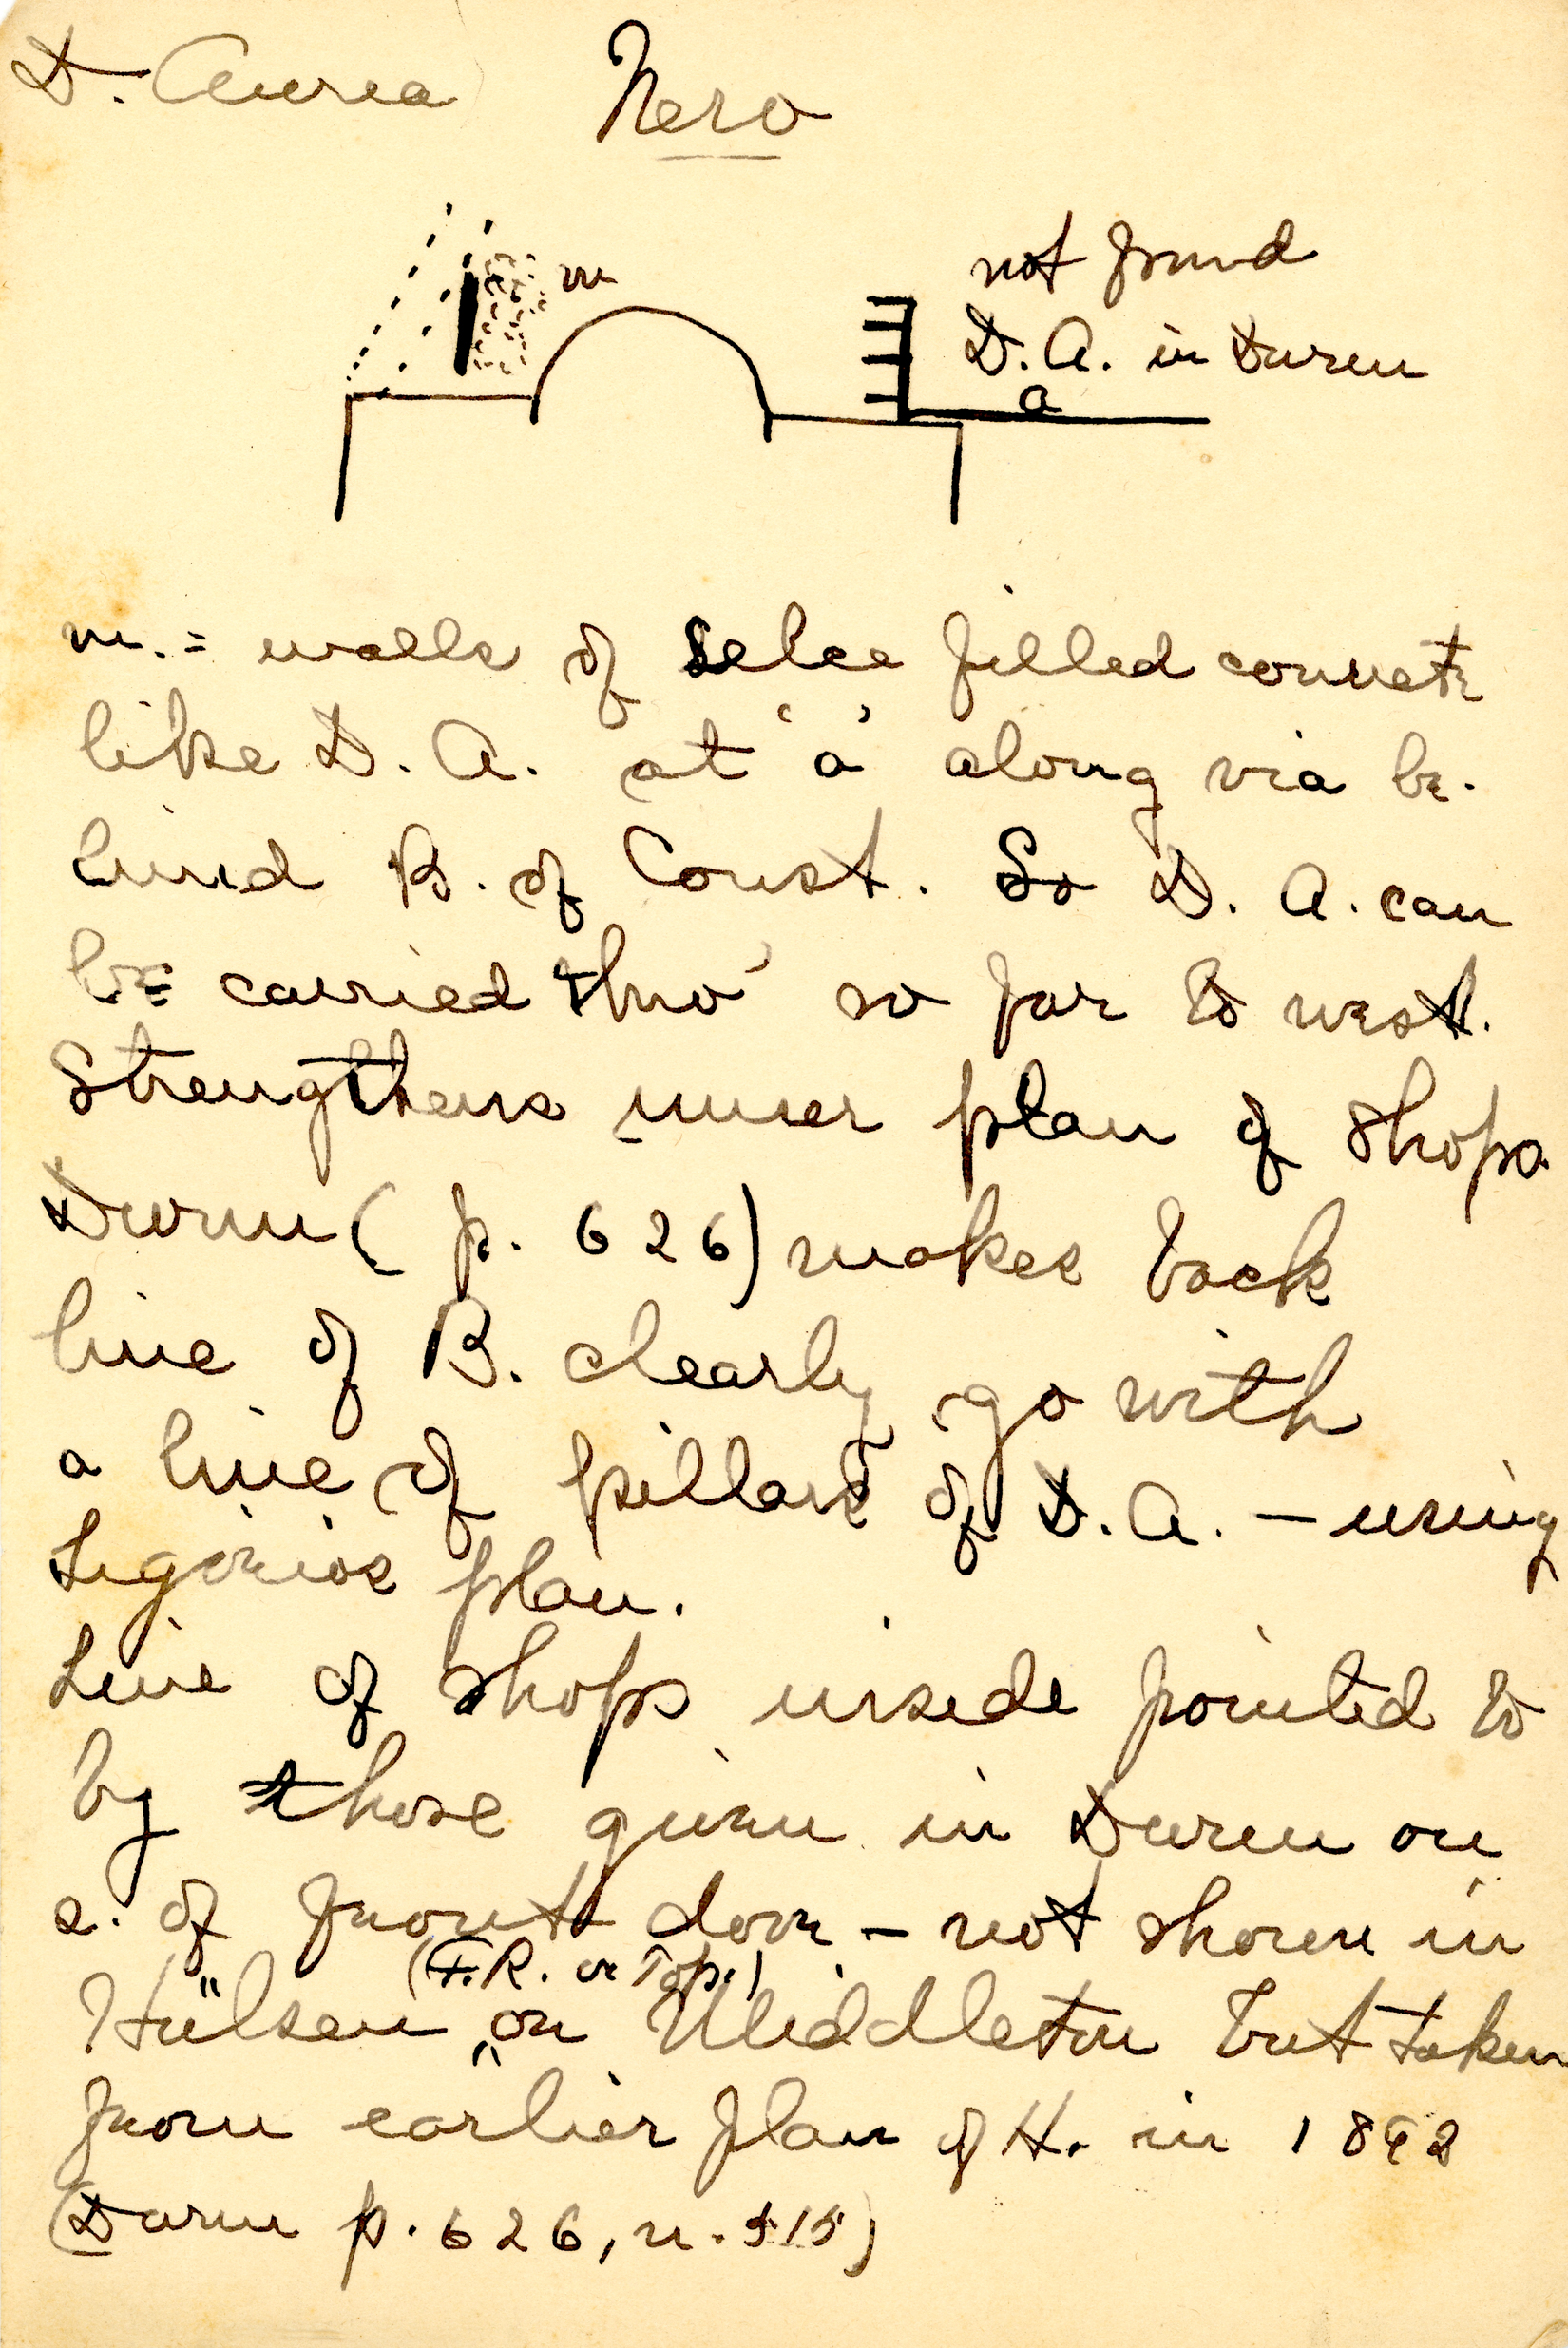 D. Aurea Nero
m
not found
D. A. in Durm
a
m. = walls of selce filled concrete
like D. A. at 'a' along via be-
hind B. of Const. So D. A. can
be carried thro' so far to west.
Strengthens inner plan of shops
Durm (p. 626) makes back
line of B. clearly go with
a line of pillars of D. A. – using
Ligorios plan.
Line of shops inside pointed to
by those given in Durm on
s. of front door – not shown in
(F.R. or Top.)
Hülsen or Middleton but taken
from earlier plan of H. in 1892
(Durm p. 626, n. 515)